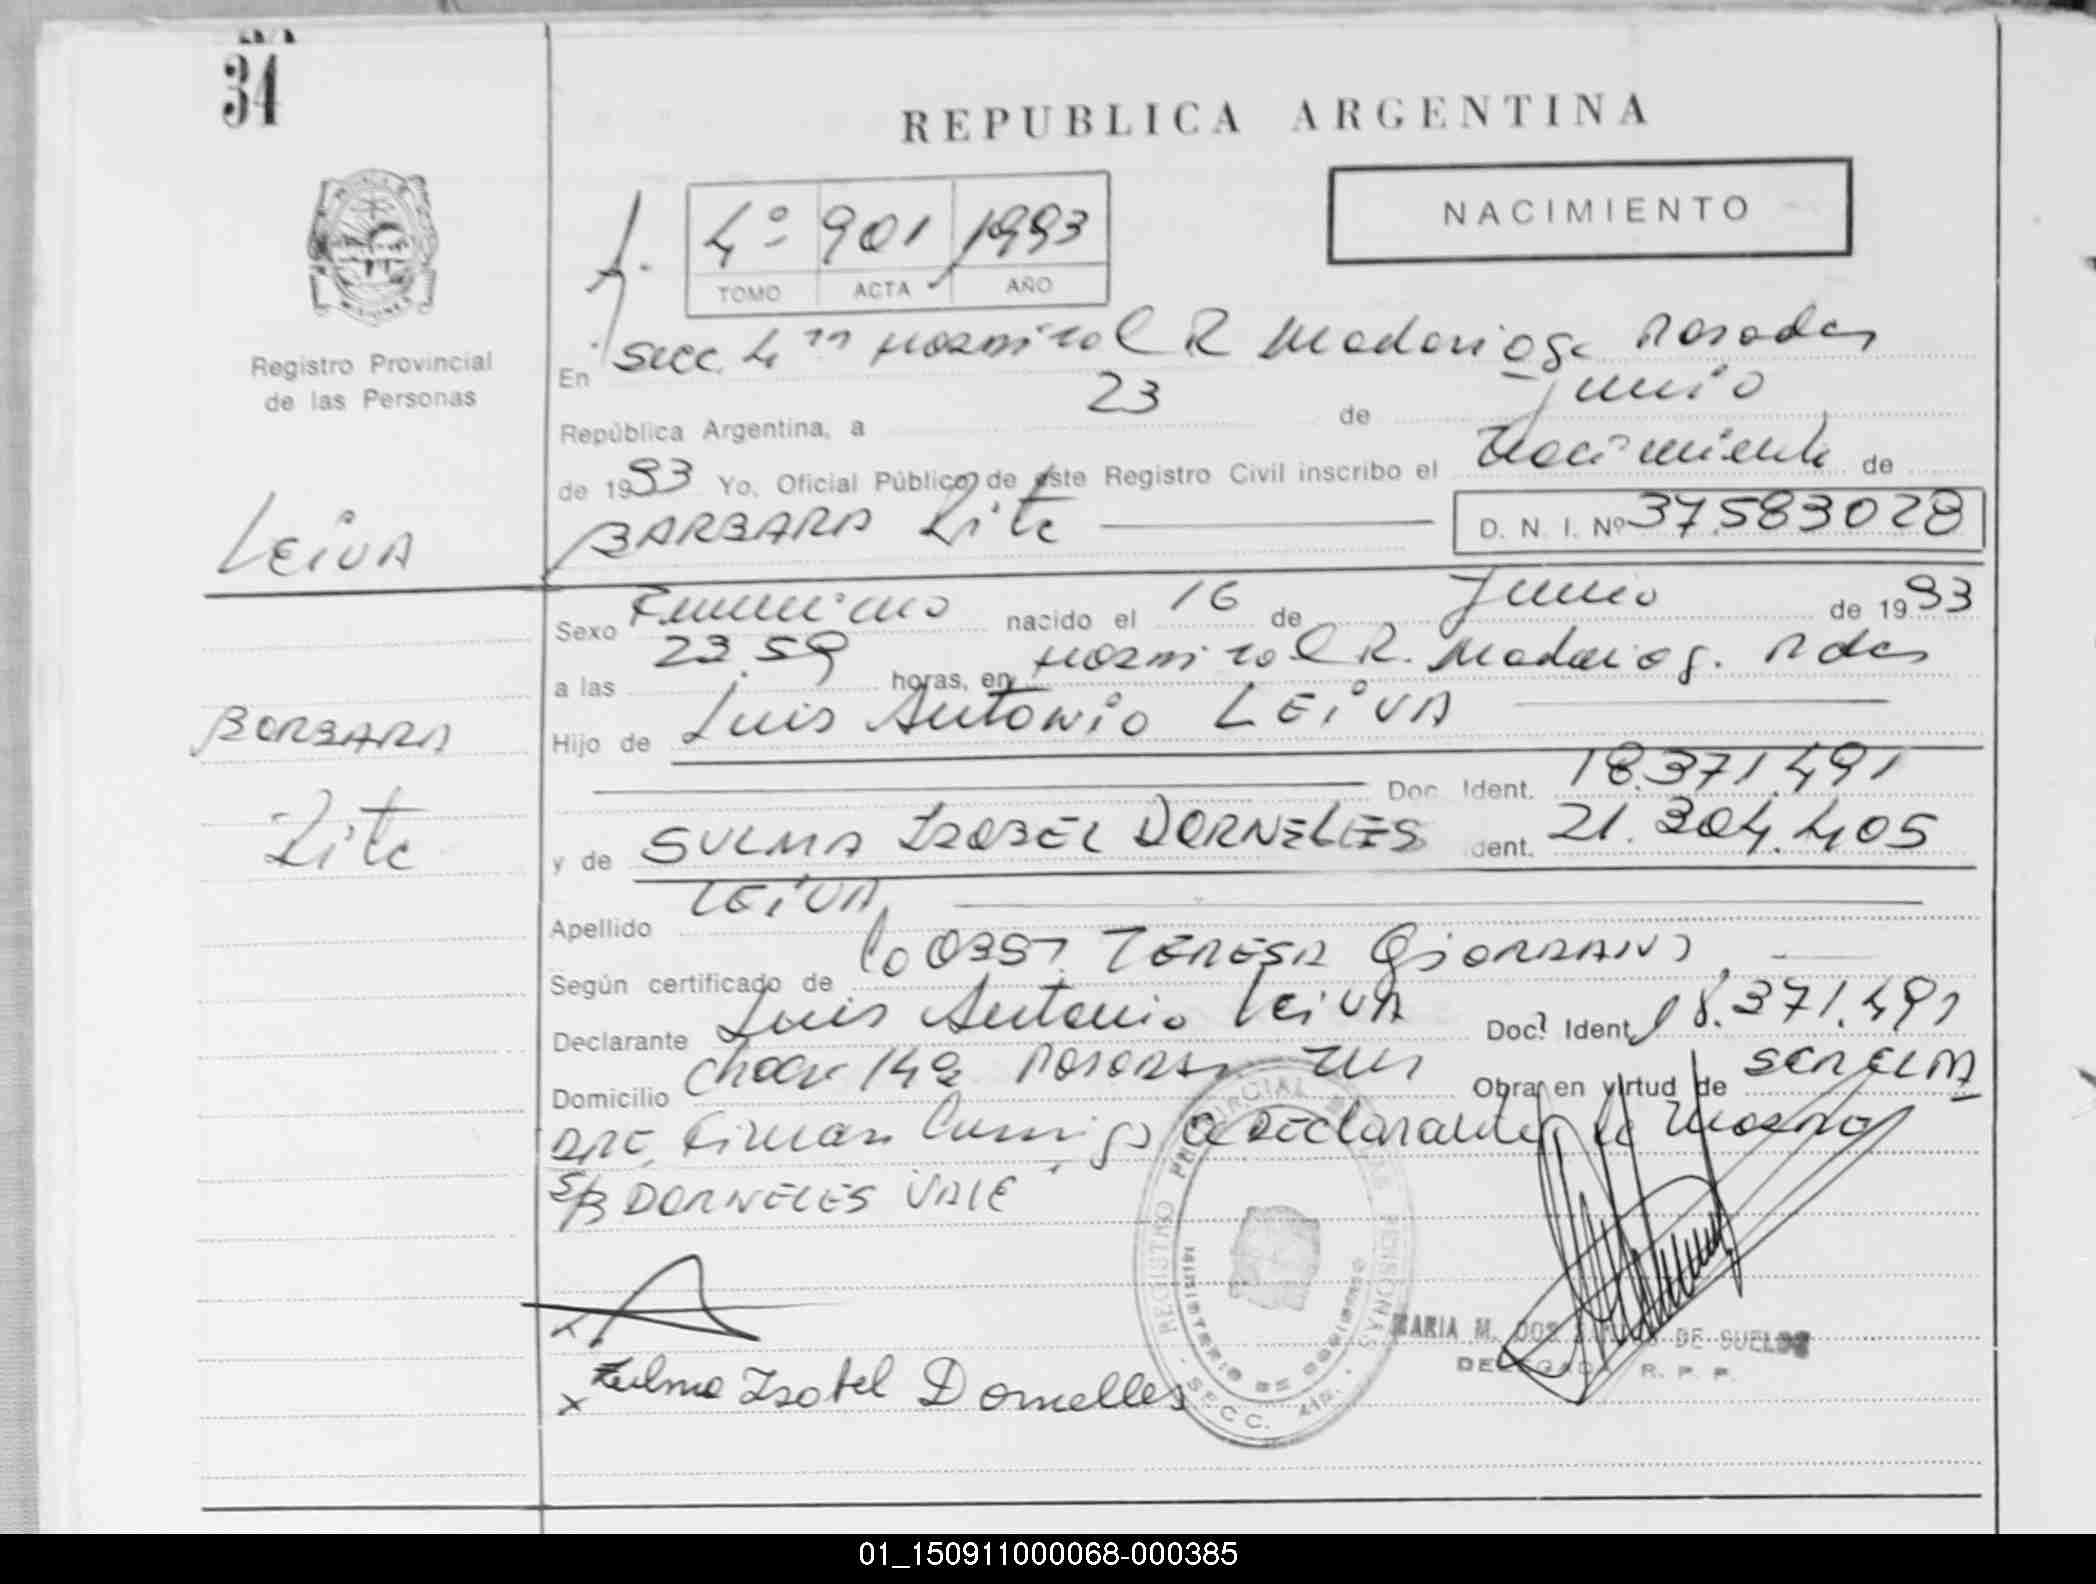 34
REPUBLICA ARGENTINA
NACIMIENTO
4º 901 1993
TOMO ACTA AÑO
Registro Provincial
de las Personas
En Secc. 4ta Hospital R Madariaga Posadas
República Argentina, a 23 de Junio
de 1993 Yo, Oficial Público de este Registro Civil inscribo el Nacimiento de
LEIVA
BARBARA Rita
D. N. I. Nº 37.583028
Sexo Femenino nacido el 16 de Junio de 1993
a las 23.59 horas, en Hospital R. Madariag. Pdas
BARBARA
Rita
Hijo de Luis Antonio LEIVA
Doc. Ident. 18.371.491
y de SULMA ISABEL DORNELES dent. 21.304.405
Apellido LEIVA
Según certificado de Obst. TERESA GIORDANO
Declarante Luis Antonio LEIVA Doc. Ident. 18.371.491
Domicilio Chacr 149 Posadas Obra en virtud de
Firman Conmigo Declarante
S/B DORNELES VALE
Zulma Isabel Dornelles
REGISTRO PROVINCIAL DE LAS PERSONAS
MINISTERIO DE GOBIERNO
SECC. 4ta.
MARIA M. DOS SANTOS DE SUELDO
DELEGADA R. P. P.
01_150911000068-000385